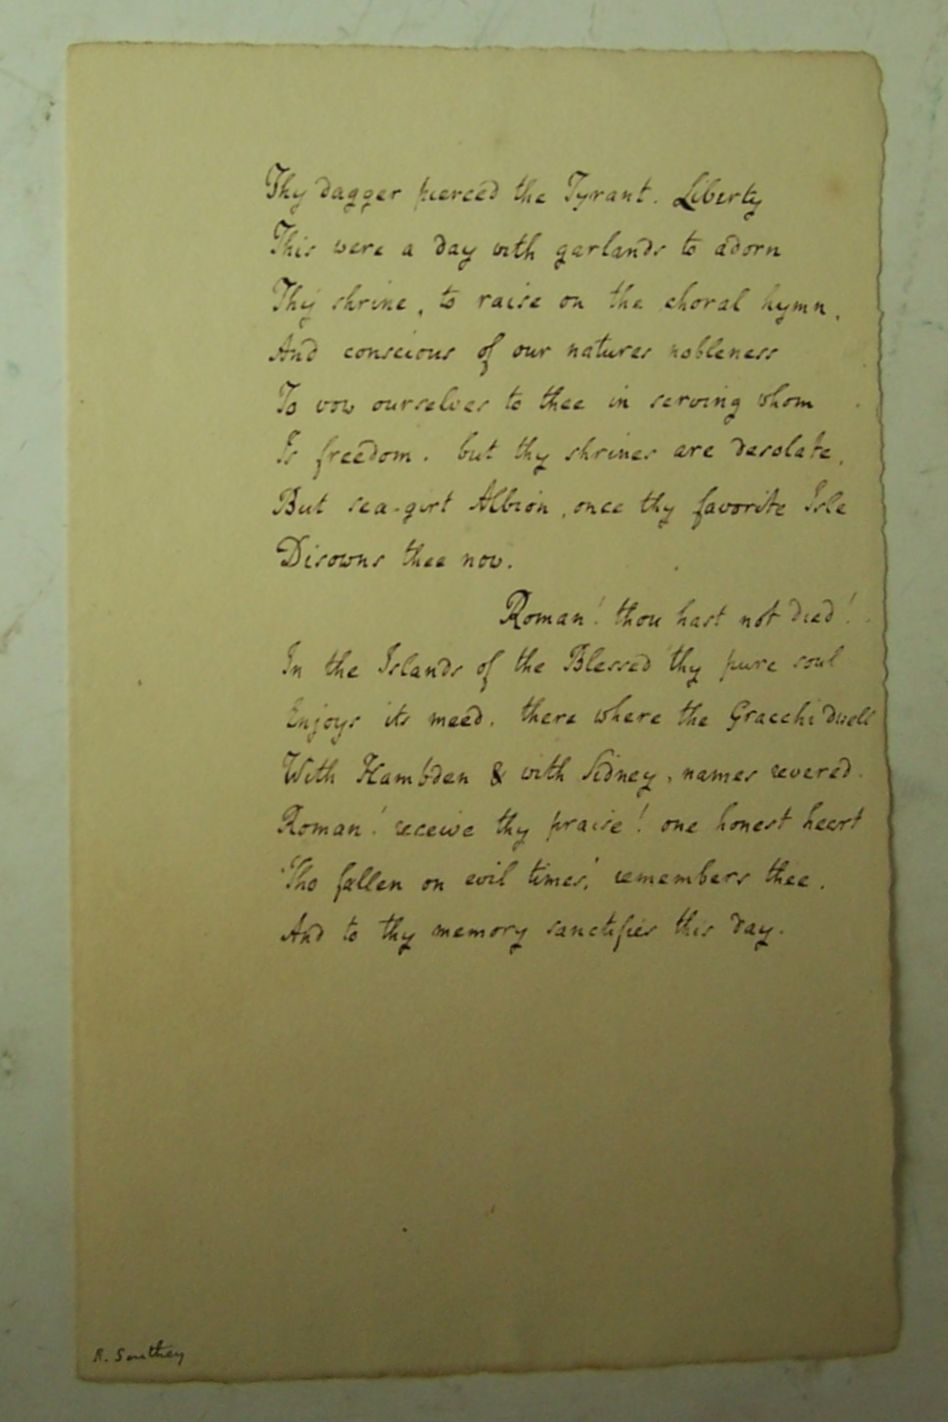 Thy dagger pierced the Tyrant. Liberty
This were a day with garlands to adorn
Thy shrine, to raise on the choral hymn,
And conscious of our natures nobleness
To vow ourselves to thee in serving whom
Is freedom. but thy shrines are desolate,
But sea-girt Albion, once thy favorite Isle
Disowns thee now.
Roman! thou hast not died!
In the Islands of the Blessed thy pure soul
Enjoys its meed. there where the Gracchi dwell
With Hambden & with Sidney, names revered.
Roman! receive thy praise! one honest heart
Tho fallen on evil times, remembers thee.
And to thy memory sanctifies this day.
R. Southey